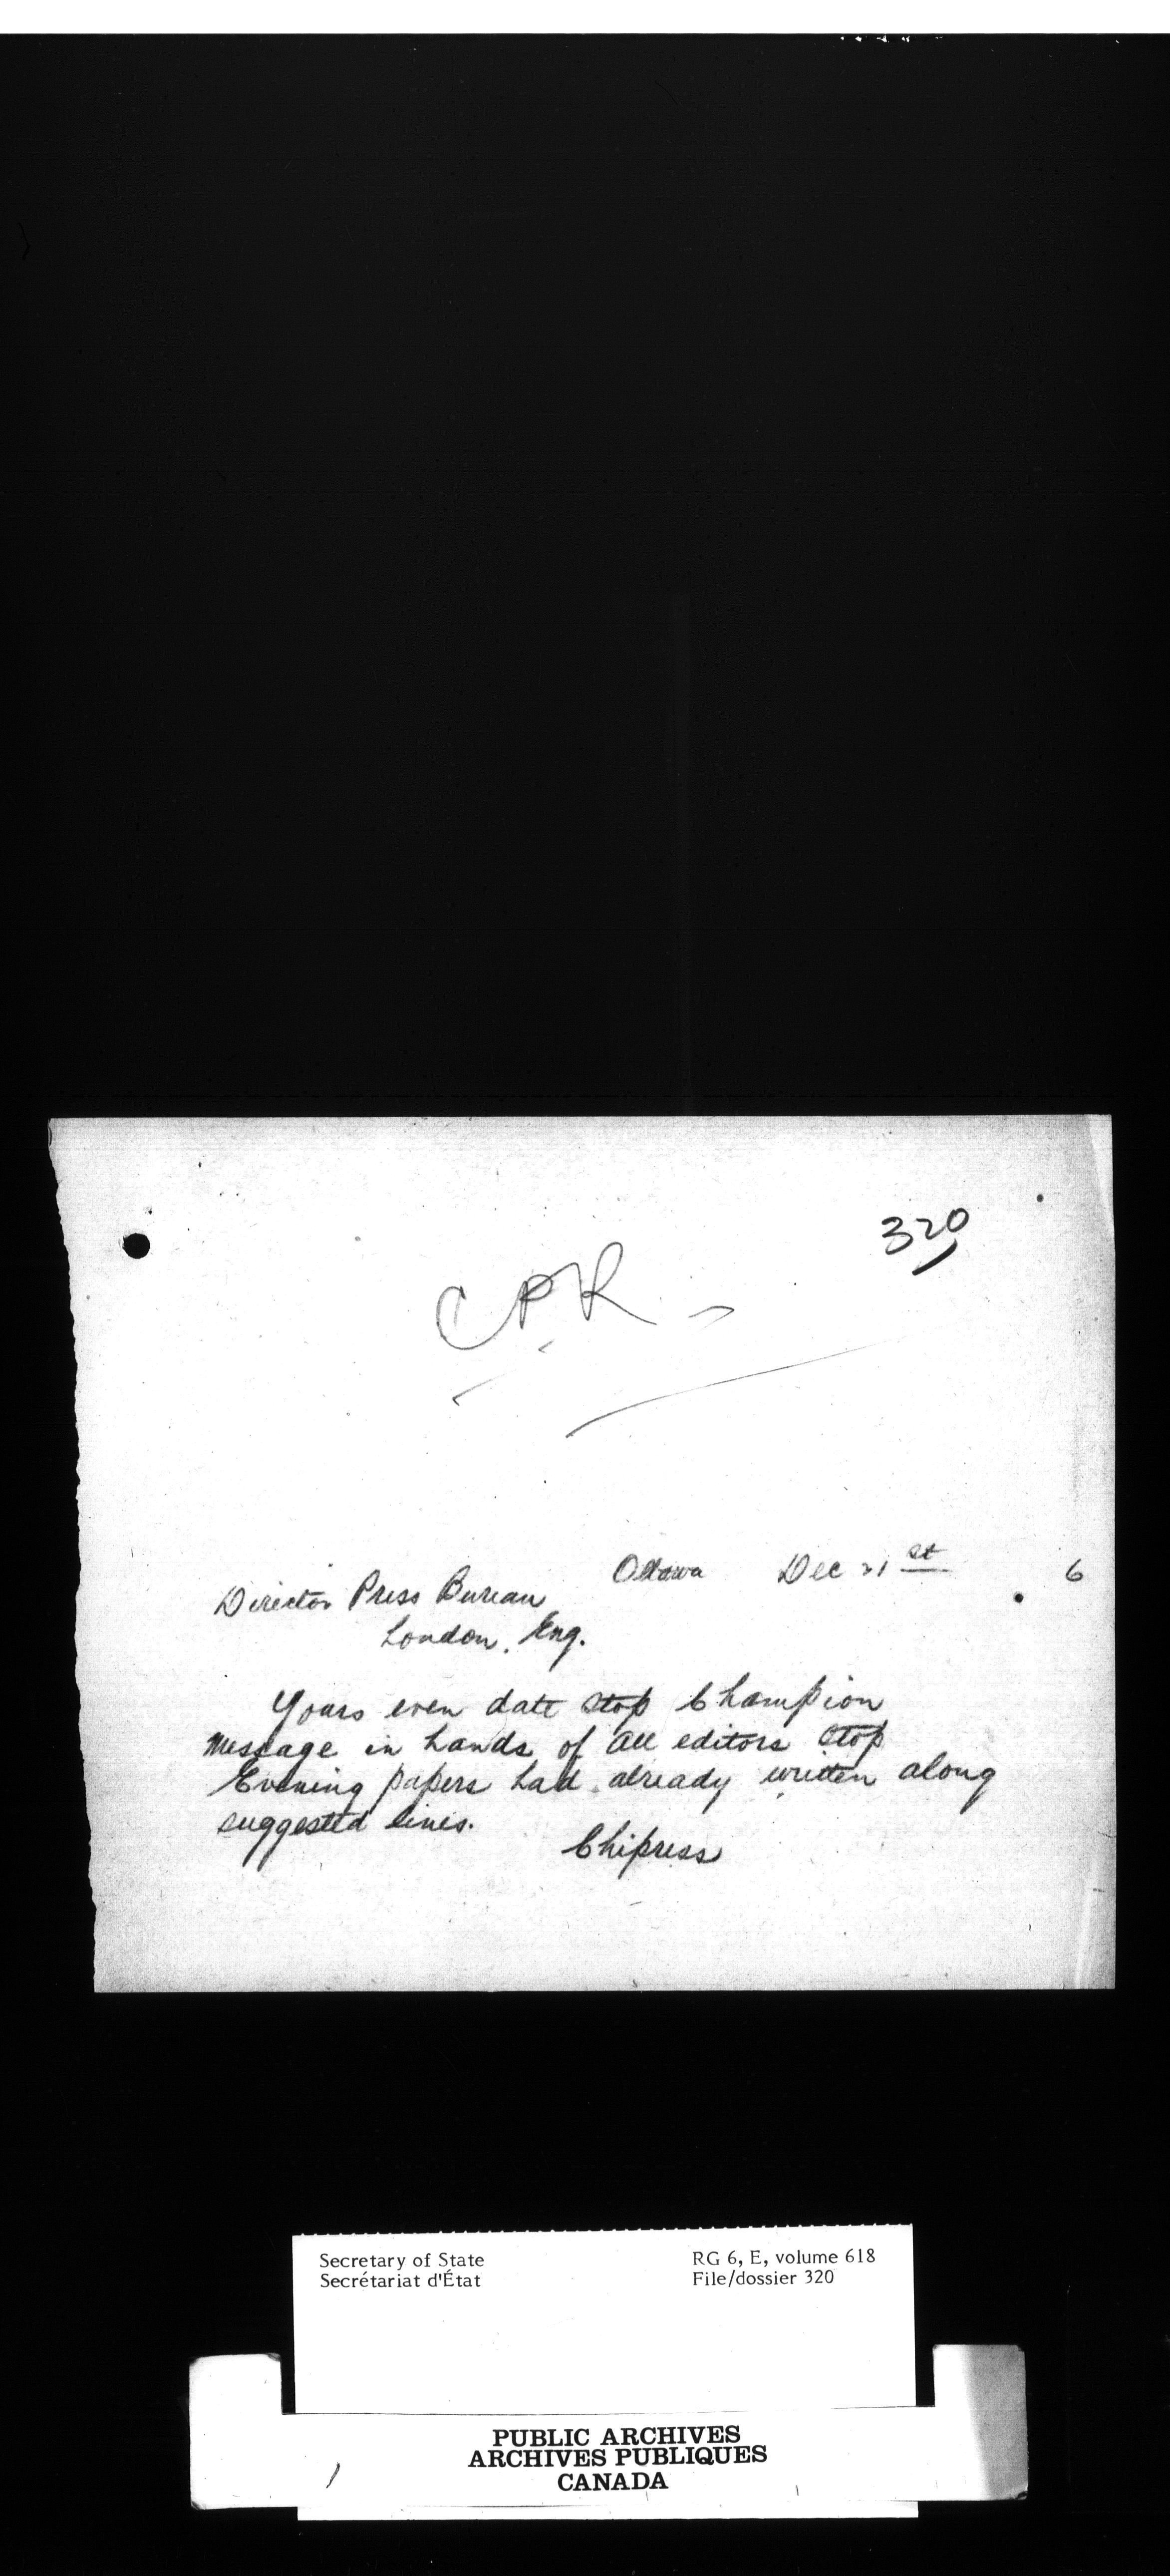 320
CPR -
Ottawa Dec 21st 6
Director Press Bureau
London, Eng.
Yours even date stop Champion
message in hands of all editors stop
Evening papers had already written along
suggested lines.
Chipress
Secretary of State
Secrétariat d'État
RG 6, E, volume 618
File/dossier 320
PUBLIC ARCHIVES
ARCHIVES PUBLIQUES
CANADA